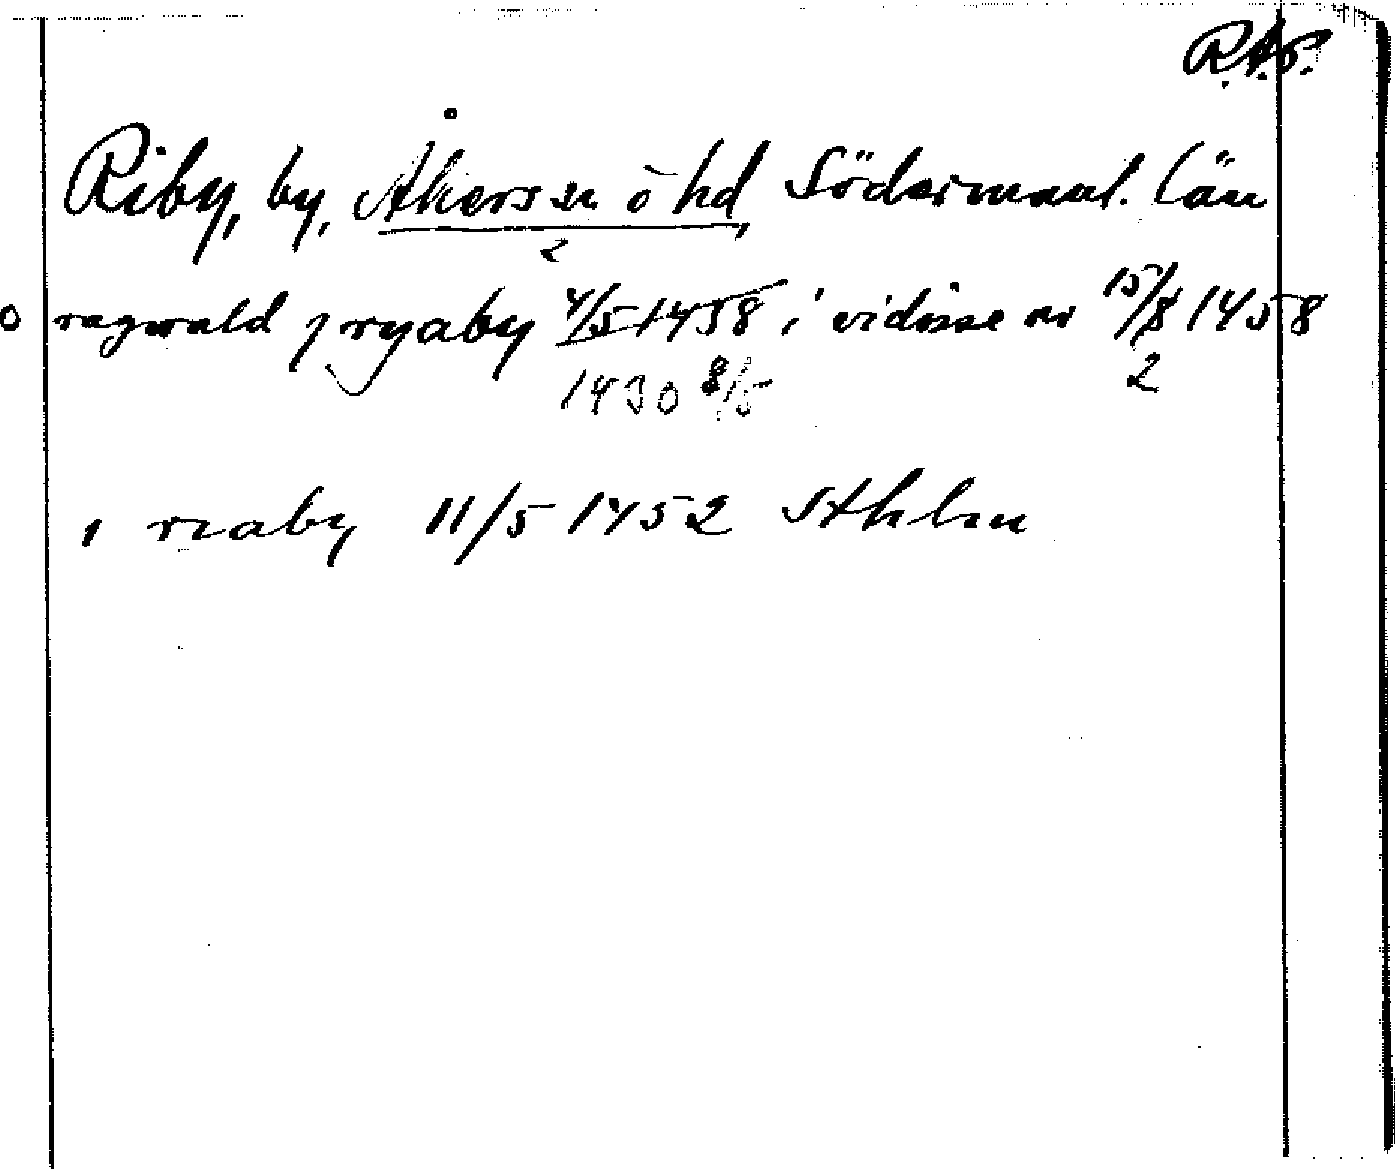 R.A.P.
Riby, by, Åkers sn o hd, Södermanl. län
2
o ragwald j ryaby 4/5 1438 i vidisse av 15/8 1458
1430 8/5 2
i reaby 11/5 1452 Sthlm